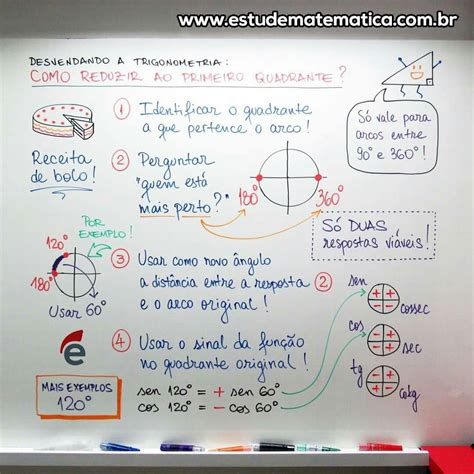 www.estudematematica.com.br
DESVENDANDO A TRIGONOMETRIA:
COMO REDUZIR AO PRIMEIRO QUADRANTE?
Receita
de bolo!
1 Identificar o quadrante
a que pertence o arco!
Só vale para
arcos entre
90° e 360°!
2 Perguntar
"quem está
mais perto?"
180°
360°
Só DUAS
respostas viáveis!
POR
EXEMPLO!
120°
180°
Usar 60°
3 Usar como novo ângulo
a distância entre a resposta 2
e o arco original!
4 Usar o sinal da função
no quadrante original!
sen
+ +
- -
cossec
cos
- +
- +
sec
tg
- +
+ -
cotg
e
MAIS EXEMPLOS
120°
sen 120° = + sen 60°
cos 120° = - cos 60°